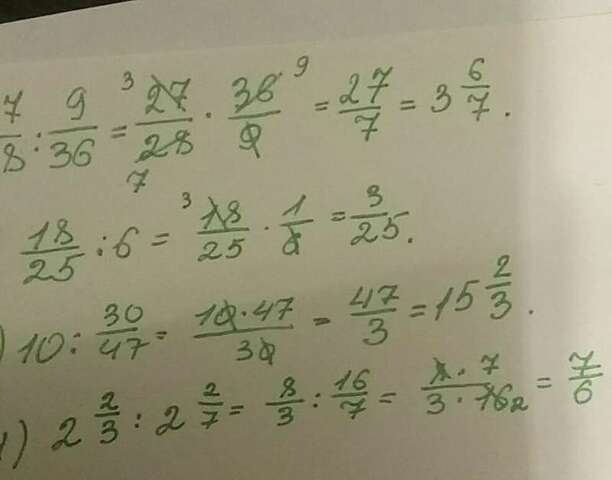 7/8 : 9/36 = 27/28 · 36/9 = 27/7 = 3 6/7.
18/25 : 6 = 18/25 · 1/6 = 3/25.
) 10 : 30/47 = 10·47/30 = 47/3 = 15 2/3.
) 2 2/3 : 2 2/7 = 8/3 : 16/7 = 8·7/3·16 = 7/6